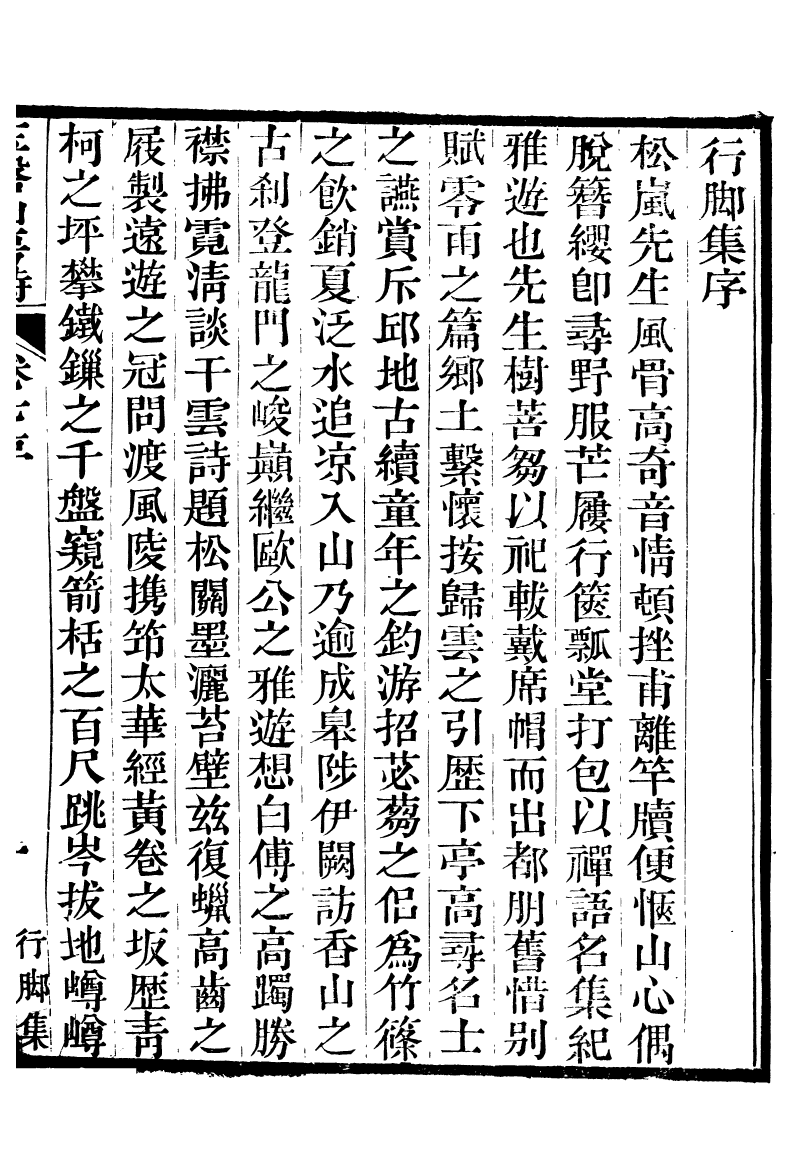 行脚集序
松嵐先生風骨高奇音情頓挫甫離竿牘便愜山心偶
脫簪纓卽尋野服芒屨行篋瓢堂打包以禪語名集紀
雅遊也先生樹菩芻以祀軷戴席帽而出都朋舊惜別
賦零雨之篇鄉土繫懷按歸雲之引歷下亭高尋名士
之讌賞斥邱地古續童年之釣游招苾蒭之侶爲竹篠
之飮銷夏泛水追凉入山乃逾成皋陟伊闕訪香山之
古刹登龍門之峻巔繼歐公之雅遊想白傅之高躅勝
襟拂霓淸談干雲詩題松關墨灑苔壁玆復蠟高齒之
屐製遠遊之冠問渡風陵携笻太華經黃卷之坂歷靑
柯之坪攀鐵鏁之千盤窺箭栝之百尺跳岑拔地嶟嶟
行脚集